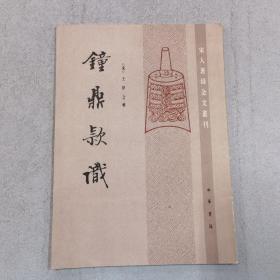 宋人著錄金文叢刊
鐘鼎款識
〔宋〕王厚之輯
中華書局